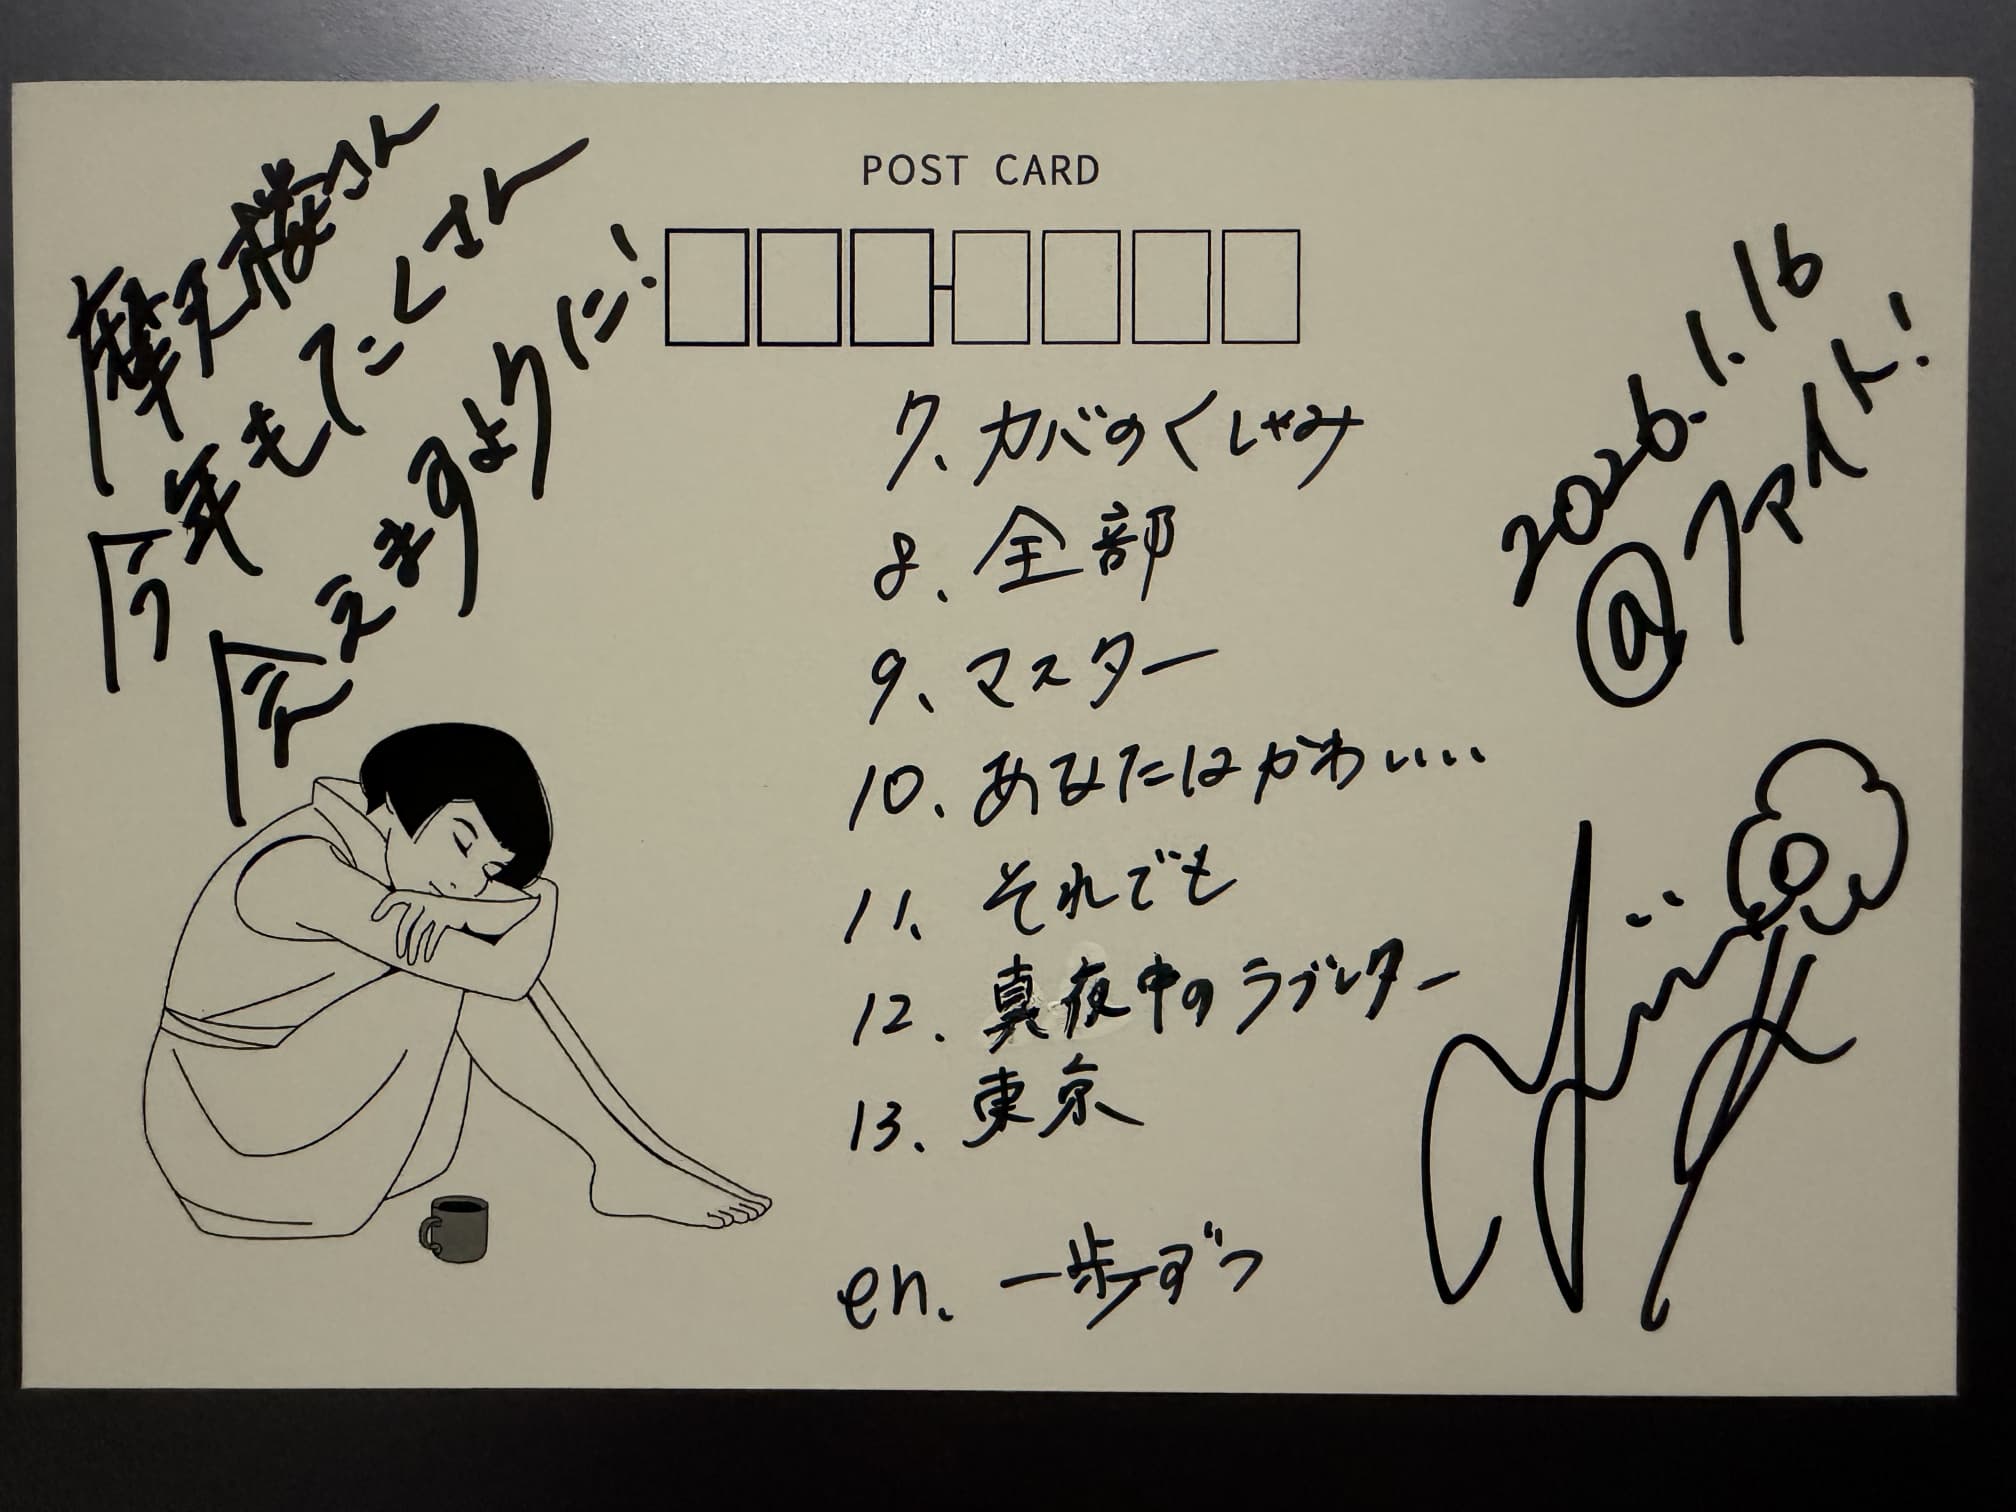 摩天楼さん
今年もたくさん
会えますように!
POST CARD
2026.1.16
@ファイト!
7. カバのくしゃみ
8. 全部
9. マスター
10. あなたはかわいい…
11. それでも
12. 真夜中のラブレター
13. 東京
en. 一歩ずつ